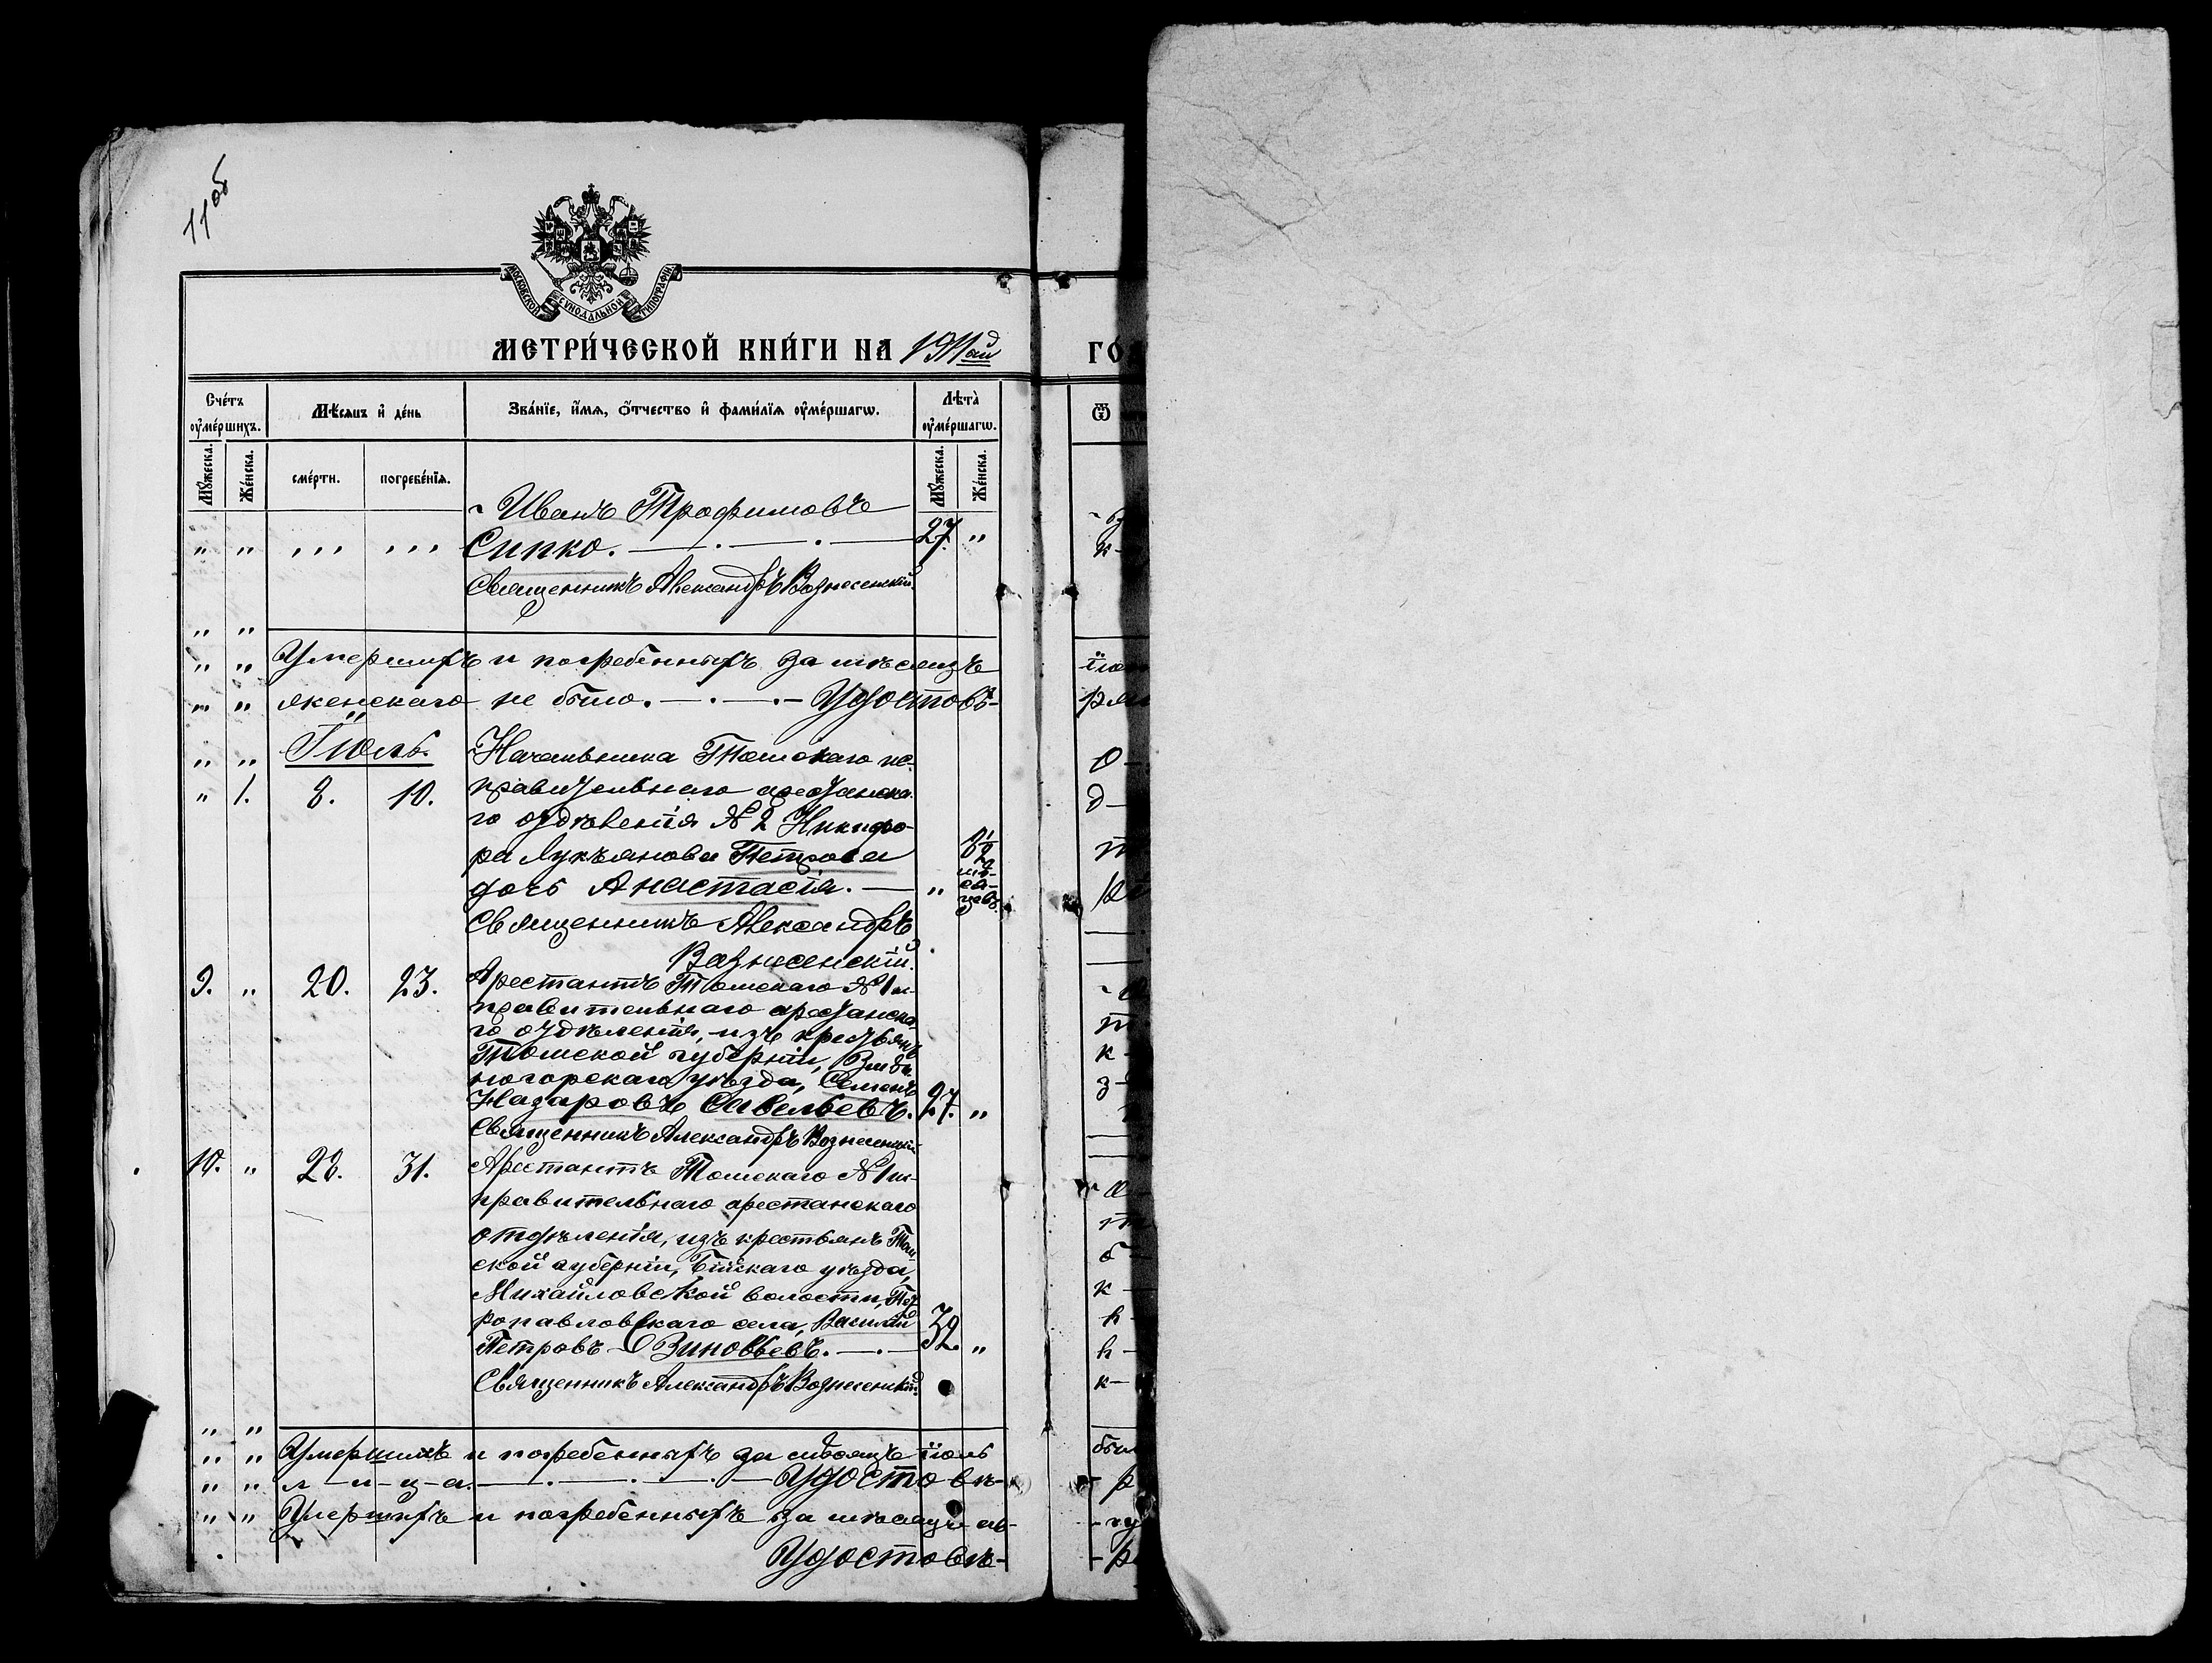 11 об
МОСКОВСКОЙ СѴНОДАЛЬНОЙ ТИПОГРАФІИ
МЕТРИ́ЧЕСКОЙ КНИ́ГИ НА 1911ый ГО
Сче́тъ ᲂу҆ме́ршихъ.
Мѣ́сяцъ и҆ де́нь
Зва́нїе, и҆́мѧ, ѻ҆́тчество и҆ фами́лїѧ ᲂу҆ме́ршагѡ.
Лѣ́та ᲂу҆ме́ршагѡ.
Ѿ
Мꙋ́жеска. Же́нска. сме́рти. погребе́нїѧ. Мꙋ́жеска. Же́нска.
Иванъ Трофимовъ
" " ,,, ,,, Сипко. 27. "
Священникъ Александръ Вознесенскій.
" "
" " Умершихъ и погребенныхъ за мѣсяцъ
" " женскаго не было. Удостовѣ-
" " Іюль. Начальника Томскаго ис-
" 1. 8. 10. правительнаго арестанска-
го отдѣленія № 2 Никифо-
ра Лукьянова Петрова 8½ мѣ-
дочь Анастасія. " ся-
цевъ.
Священникъ Александръ
Вознесенскій.
9. " 20. 23. Арестантъ Томскаго № 1 ис-
правительнаго арестанска-
го отдѣленія, изъ крестьянъ
Томской губерніи, Змѣи-
ногорскаго уѣзда, Семенъ
Назаровъ Савельевъ. 27. "
Священникъ Александръ Вознесенскій
10. " 28. 31. Арестантъ Томскаго № 1 ис-
правительнаго арестанскаго
отдѣленія, изъ крестьянъ Том-
ской губерніи, Бійскаго уѣзда,
Михайловской волости, Пет-
ропавловскаго села, Василій
Петровъ Зиновьевъ. 32. "
Священникъ Александръ Вознесенскій
" "
" " Умершихъ и погребенныхъ за мѣсяцъ іюль
" " л-и-ц-а. Удостовѣ-
" " Умершихъ и погребенныхъ за мѣсяцъ ав-
Удостовѣ-